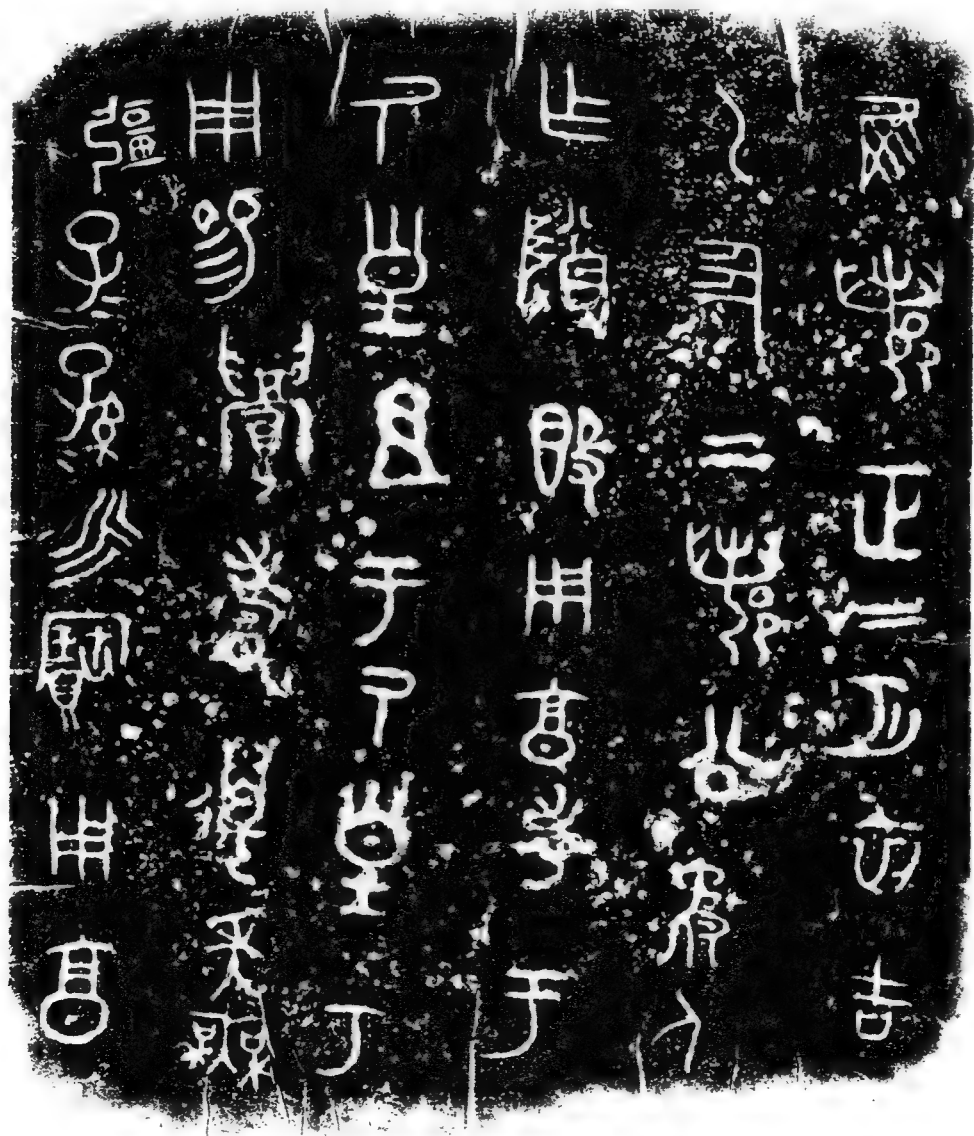 隹蠚正二月初吉
乙丑上蠚公敄人
乍尊𣪘用享孝于
氒皇且于氒皇丂
用易眉壽邁年無
疆子=孫=永寶用享